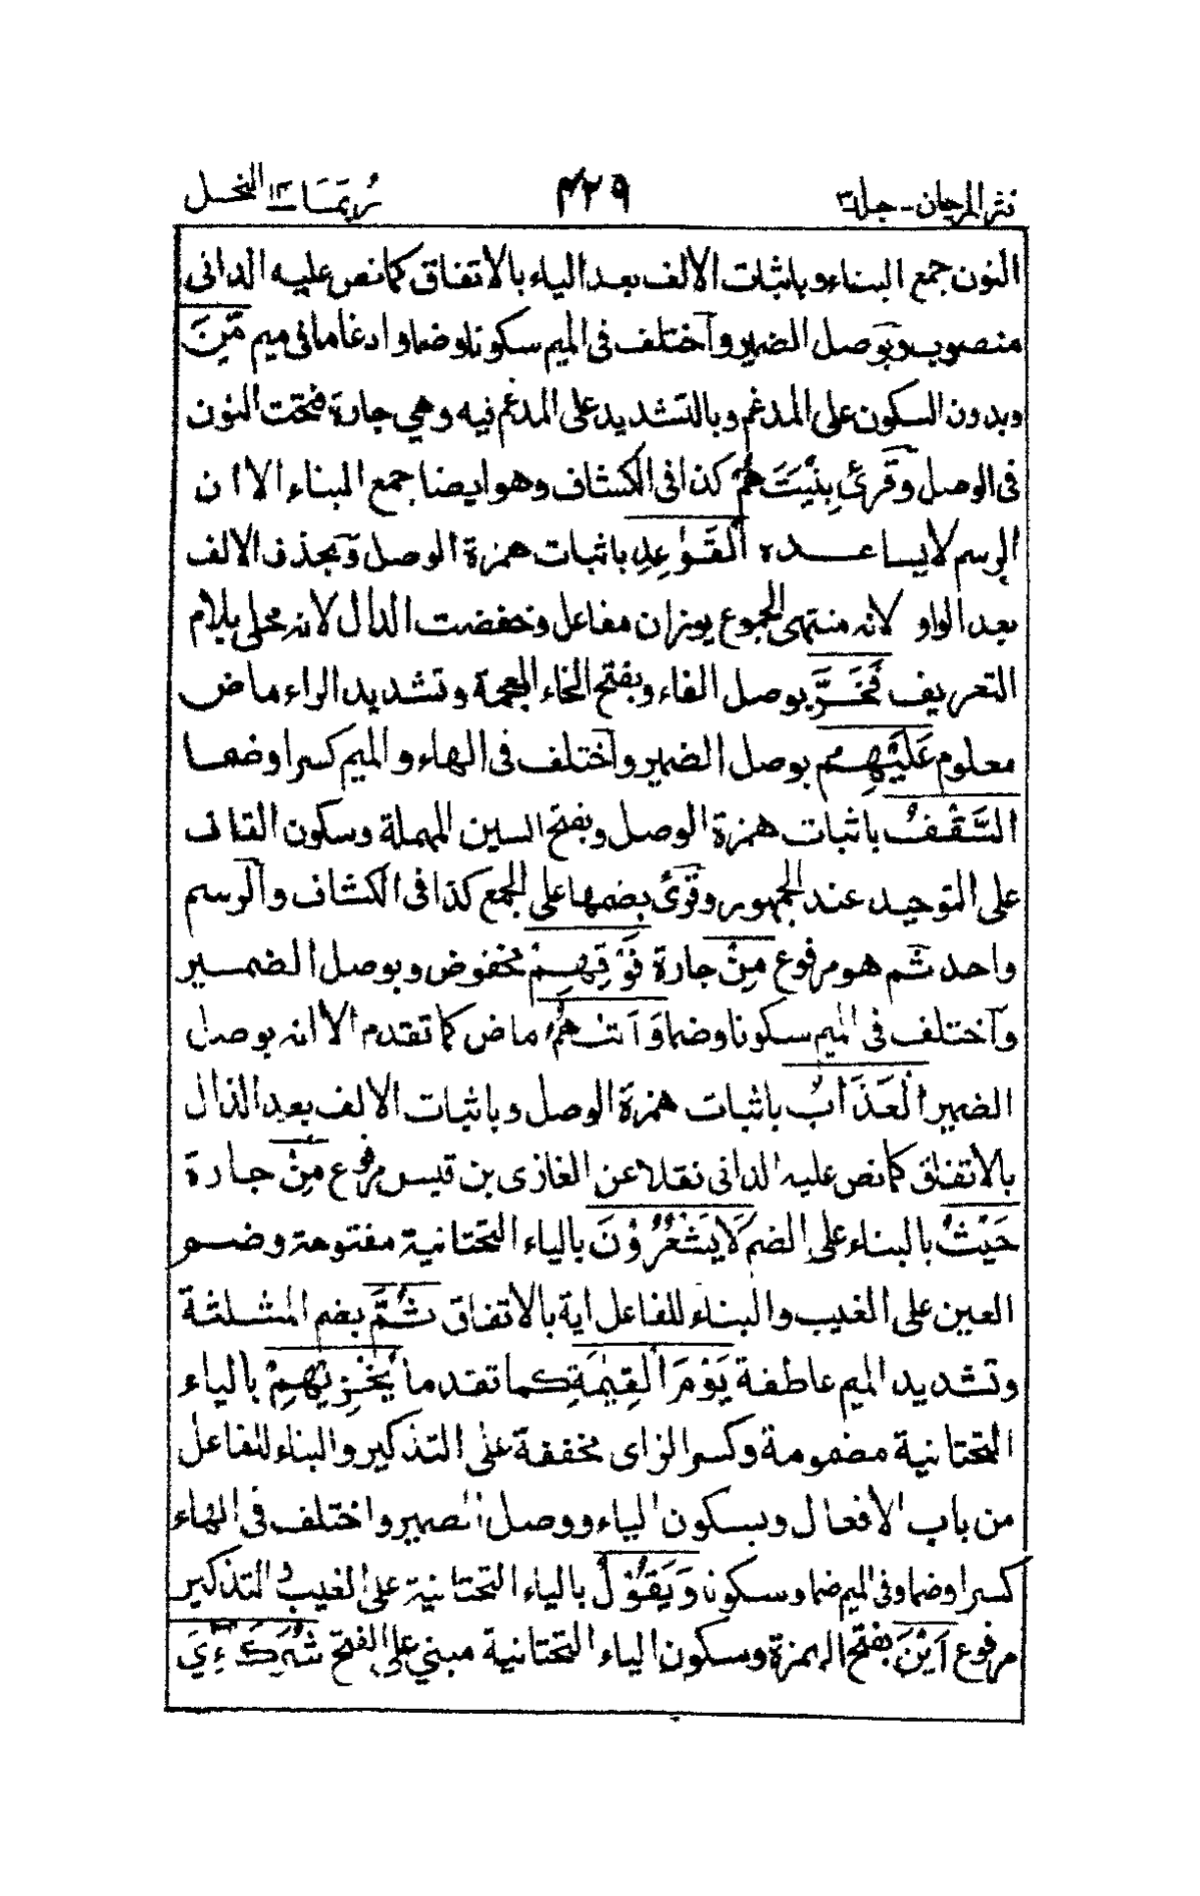 نثر المرجان - جلد٣ ٤٢٩ ربما ١٤ النحل
النون جمع البناء وباثبات الالف بعد الياء بالاتفاق كما نص عليه الدانى
منصوب وبوصل الضمير وآختلف فى الميم سكونا وضما وادغاما فى ميم مِّنَ
وبدون السكون على المدغم وبالتشديد على المدغم فيه وهي جارة فتحت النون
فى الوصل وقرئ بِنْيَتَهُمْ كذا فى الكشاف وهو ايضا جمع البناء الا ان
الرسم لا يساعده الْقَوٰعِدِ باثبات همزة الوصل وبحذف الالف
بعد الواو لانه منتهى الجموع يوزان مفاعل وخفضت الدال لانه محلى بلام
التعريف فَخَرَّ بوصل الفاء وبفتح الخاء المعجمة وتشديد الراء ماض
معلوم عَلَيْهِمُ بوصل الضمير وآختلف فى الهاء والميم كسرا وضما
السَّقْفُ باثبات همزة الوصل وبفتح السين المهملة وسكون القاف
على التوحيد عند الجمهور وقرئ بضمها على الجمع كذا فى الكشاف والرسم
واحد ثم هو مرفوع مِنْ جارة فَوْقِهِمْ مخفوض وبوصل الضمير
وآختلف فى الميم سكونا وضما وَاَتٰىهُمُ ماض كما تقدم الا انه بوصل
الضمير الْعَذَابُ باثبات همزة الوصل وباثبات الالف بعد الذال
بالاتفاق كما نص عليه الدانى نقلا عن الغازى بن قيس مرفوع مِنْ جارة
حَيْثُ بالبناء على الضم لَا يَشْعُرُوْنَ بالياء التحتانية مفتوحة وضم
العين على الغيب والبناء للفاعل اية بالاتفاق ثُمَّ بضم المثلثة
وتشديد الميم عاطفة يَوْمَ الْقِيٰمَةِ كما تقدما يُخْزِيْهِمْ بالياء
التحتانية مضمومة وكسر الزاى مخففة على التذكير والبناء للفاعل
من باب الافعال وبسكون الياء ووصل الضمير واختلف فى الهاء
كسرا وضما وفى الميم ضما وسكونا وَيَقُوْلُ بالياء التحتانية على الغيب والتذكير
مرفوع اَيْنَ بفتح الهمزة وسكون الياء التحتانية مبني على الفتح شُرَكَاءِيَ